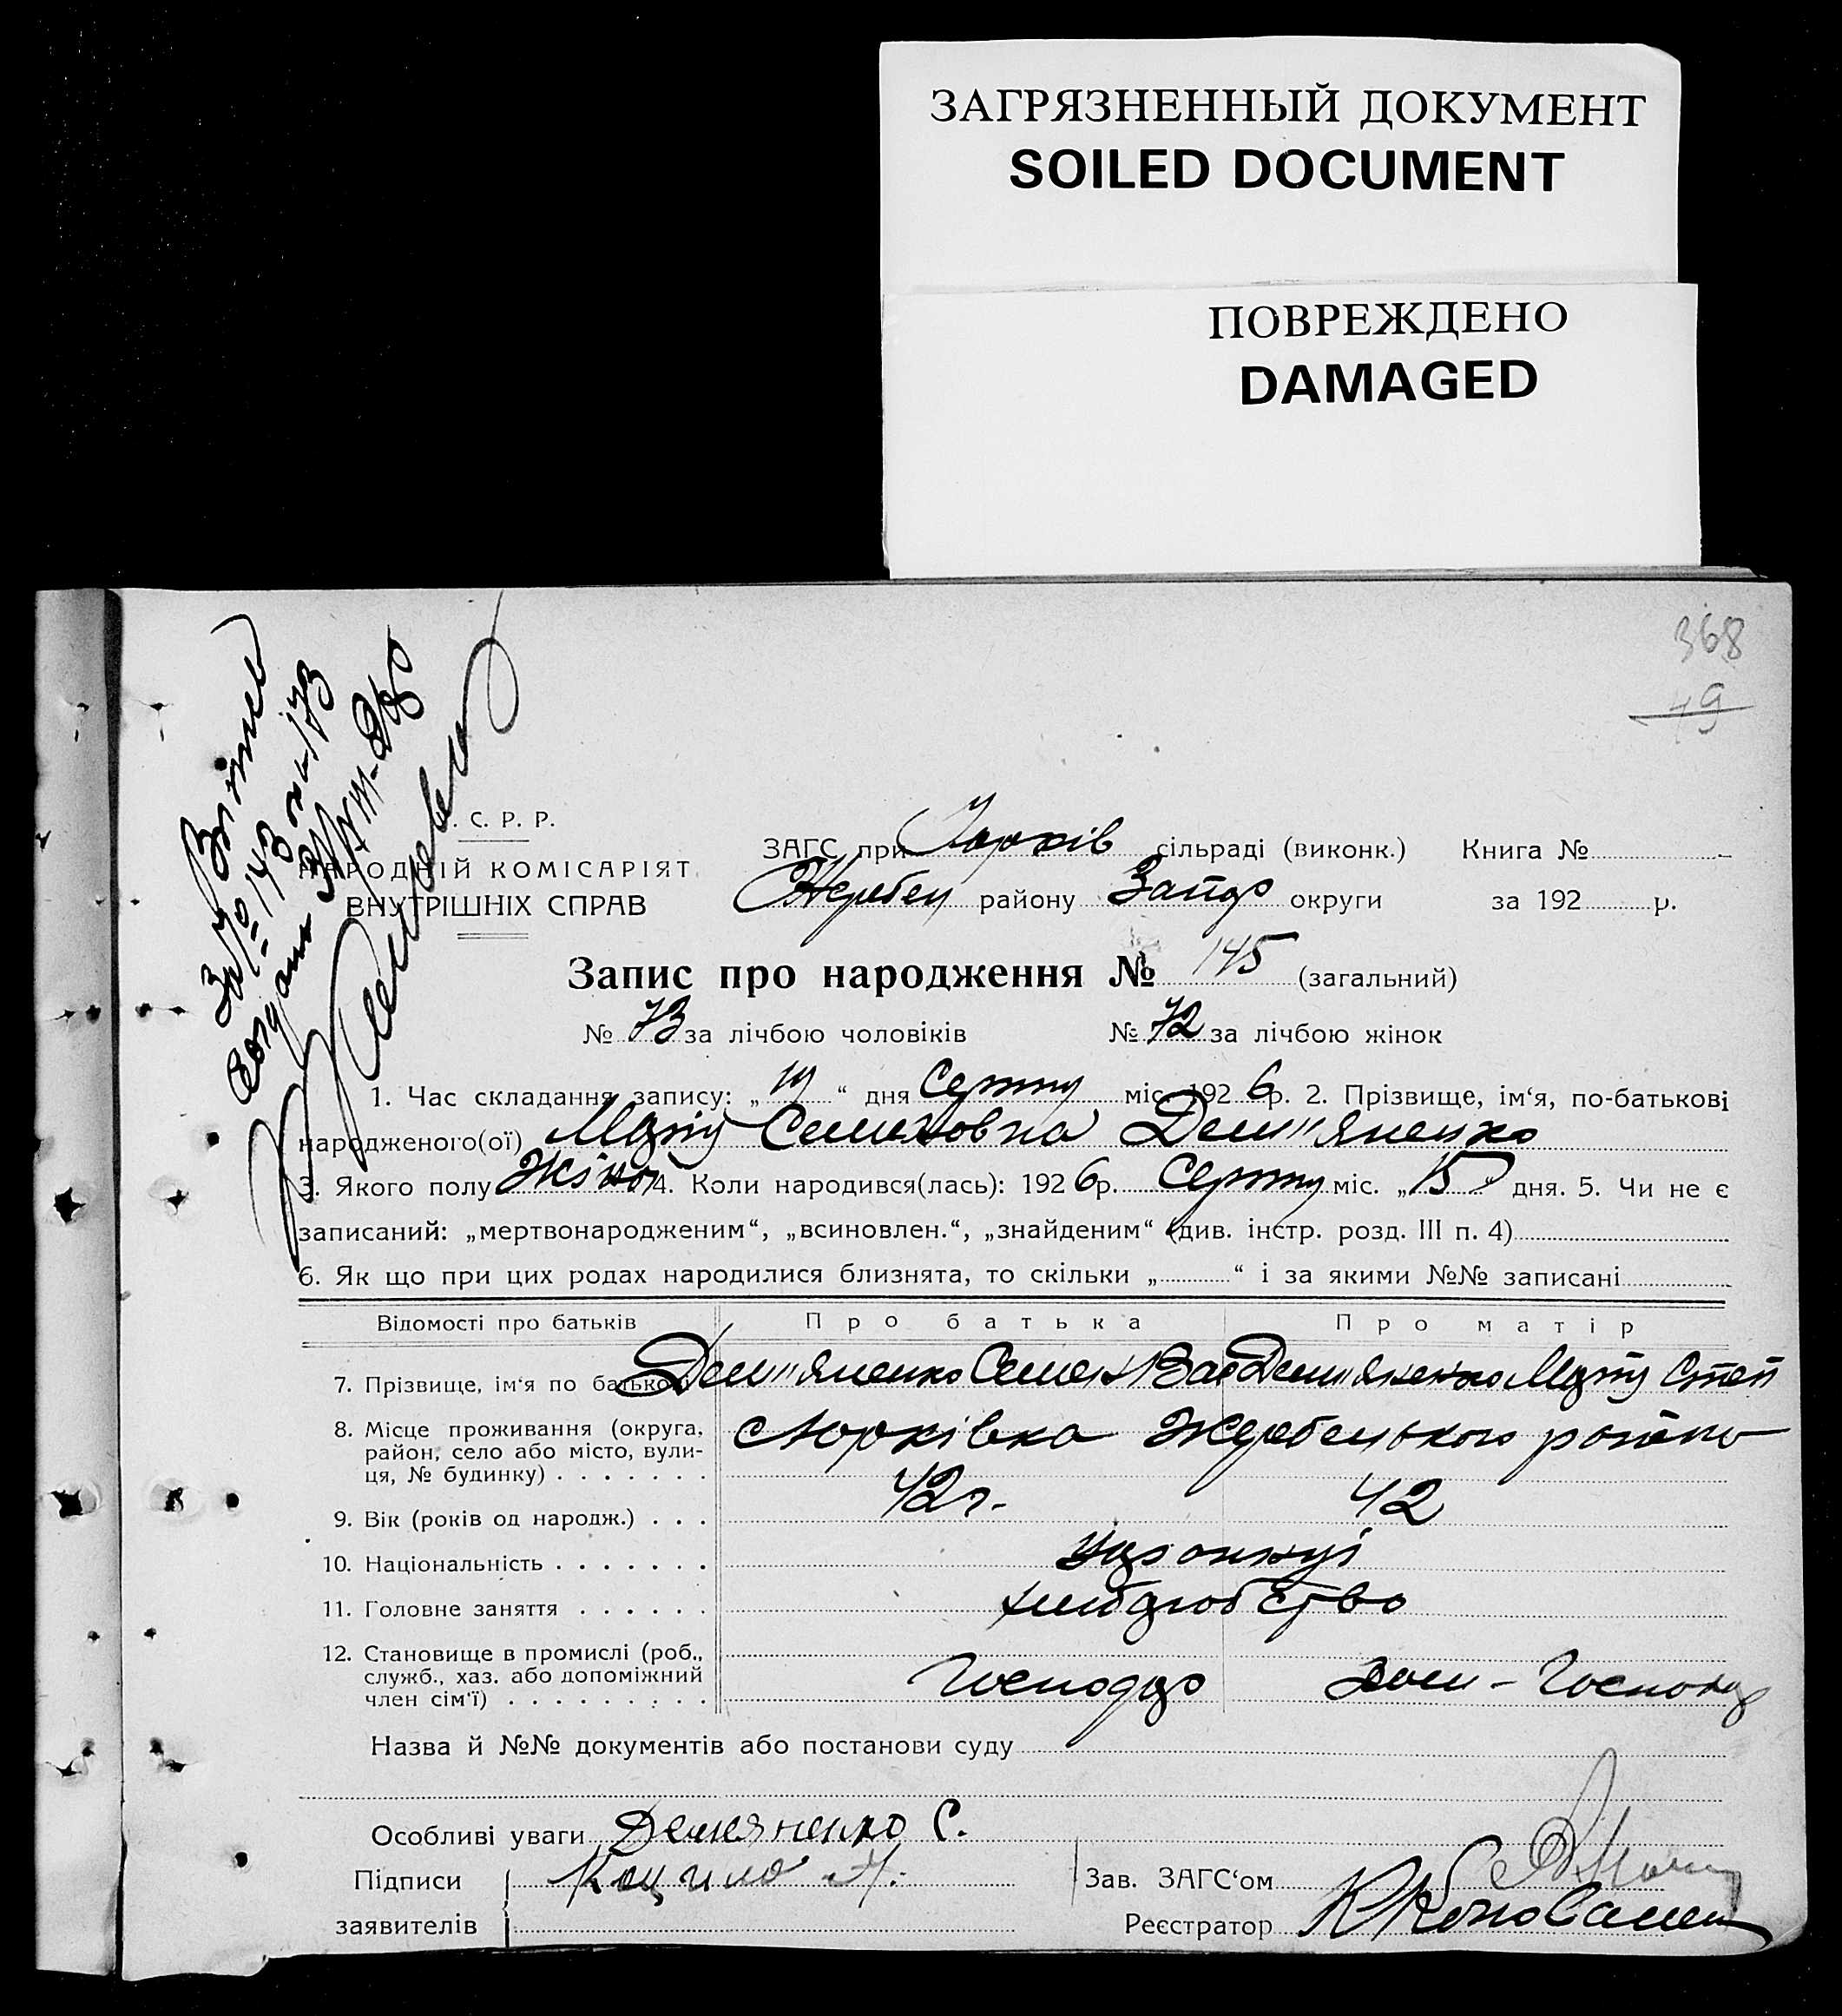 ЗАГРЯЗНЕННЫЙ ДОКУМЕНТ
SOILED DOCUMENT
ПОВРЕЖДЕНО
DAMAGED
368
49
. С. Р. Р.
НАРОДНІЙ КОМІСАРІЯТ
ВНУТРІШНІХ СПРАВ
ЗАГС при сільраді (виконк.) Книга №
Жеребец району Запор округи за 192 р.
Запис про народження № 145 (загальний)
№ 73 за лічбою чоловіків № 72 за лічбою жінок
1. Час складання запису: „ “ дня Серпня міс. 1926р. 2. Прізвище, ім‘я, по-батькові
народженого(ої) Марія Семеновна Дем"яненко
3. Якого полу Жіно 4. Коли народився(лась): 1926р. Серпня міс. „15“ дня. 5. Чи не є
записаний: „мертвонародженим“, „всиновлен.“, „знайденим“ (див. інстр. розд. III п. 4)
6. Як що при цих родах народилися близнята, то скільки „ “ і за якими №№ записані
Відомості про батьків Про батька Про матір
7. Прізвище, ім‘я по батькові Дем"яненко Семен Вас Дем"яненко Марія Степ
8. Місце проживання (округа, район, село або місто, вулиця, № будинку) Жеребецького району
9. Вік (років од народж.) 42 г. 42
10. Національність Українці
11. Головне заняття хліборобство
12. Становище в промислі (роб., служб., хаз. або допоміжний член сім‘ї) Господар Дом-Господ
Назва й №№ документів або постанови суду
Особливі уваги Демяненко С.
Підписи заявителів
Зав. ЗАГС‘ом
Реєстратор Коновален